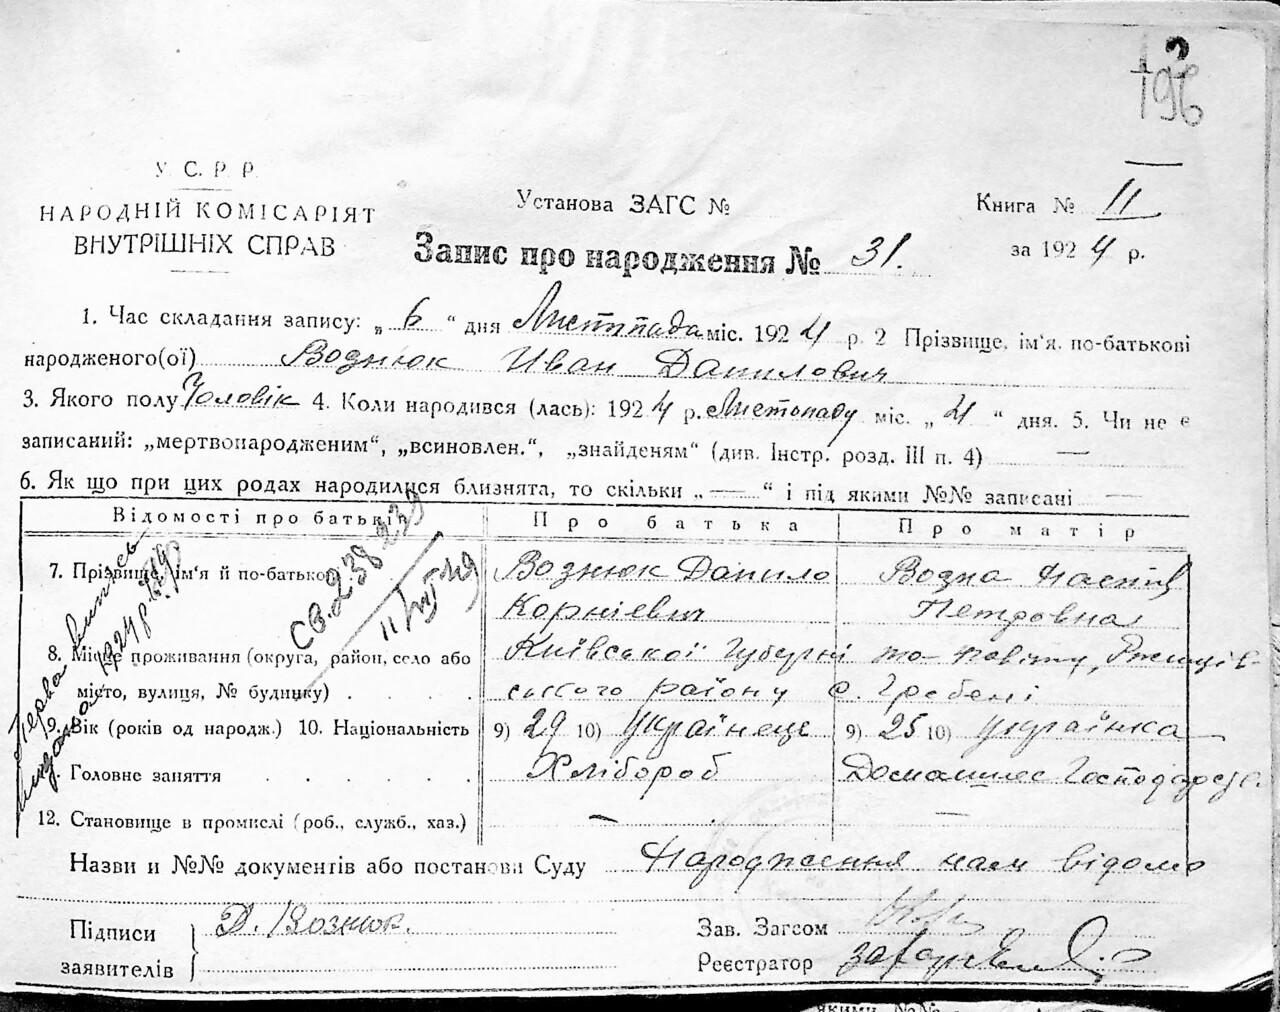 2
196
У. С. Р. Р.
НАРОДНІЙ КОМІСАРІЯТ
ВНУТРІШНІХ СПРАВ
Установа ЗАГС №
Книга № 11
за 1924 р.
Запис про народження № 31.
1. Час складання запису: „ 6 “ дня Листопада міс. 1924 р. 2 Прізвище, ім'я, по-батькові
народженого(ої) Вознюк Иван Данилович
3. Якого полу Чоловік 4. Коли народився (лась): 1924 р. Листопаду міс. „ 4 “ дня. 5. Чи не є
записаний: „мертвонародженим“, „всиновлен.“, „знайденям“ (див. Інстр. розд. III п. 4) —
6. Як що при цих родах народилися близнята, то скільки „ — “ і під якими №№ записані —
Відомості про батьків Про батька Про матір
7. Прізвище, ім'я й по-батькові Вознюк Данило Возна
Корніевич Петровна
8. Місце проживання (округа, район, село або Київської Губерні го повіту,
місто, вулиця, № будинку) ського району с. Гребені
9. Вік (років од народж.) 10. Національність 9) 29 10) Українець 9) 25 10) Українка
Головне заняття Хлібороб Домашнє
12. Становище в промислі (роб., служб., хаз.) — —
Перва випись
1924 р.
СВ. 238 239
11/III 49
Назви и №№ документів або постанови Суду Народження нам відомо
Підписи
заявителів
Д. Вознюк.
Зав. Загсом
Реєстратор
якими №№